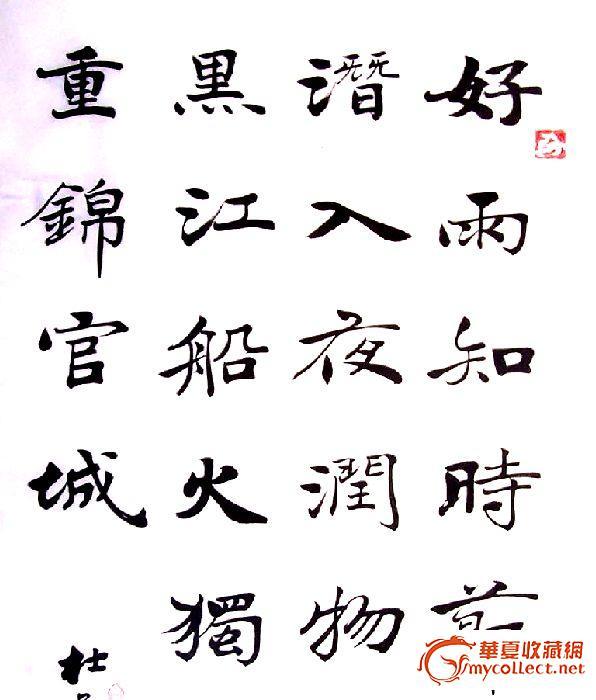 好雨知時
潛入夜潤物
黑江船火獨
重錦官城
杜
華夏收藏網
mycollect.net